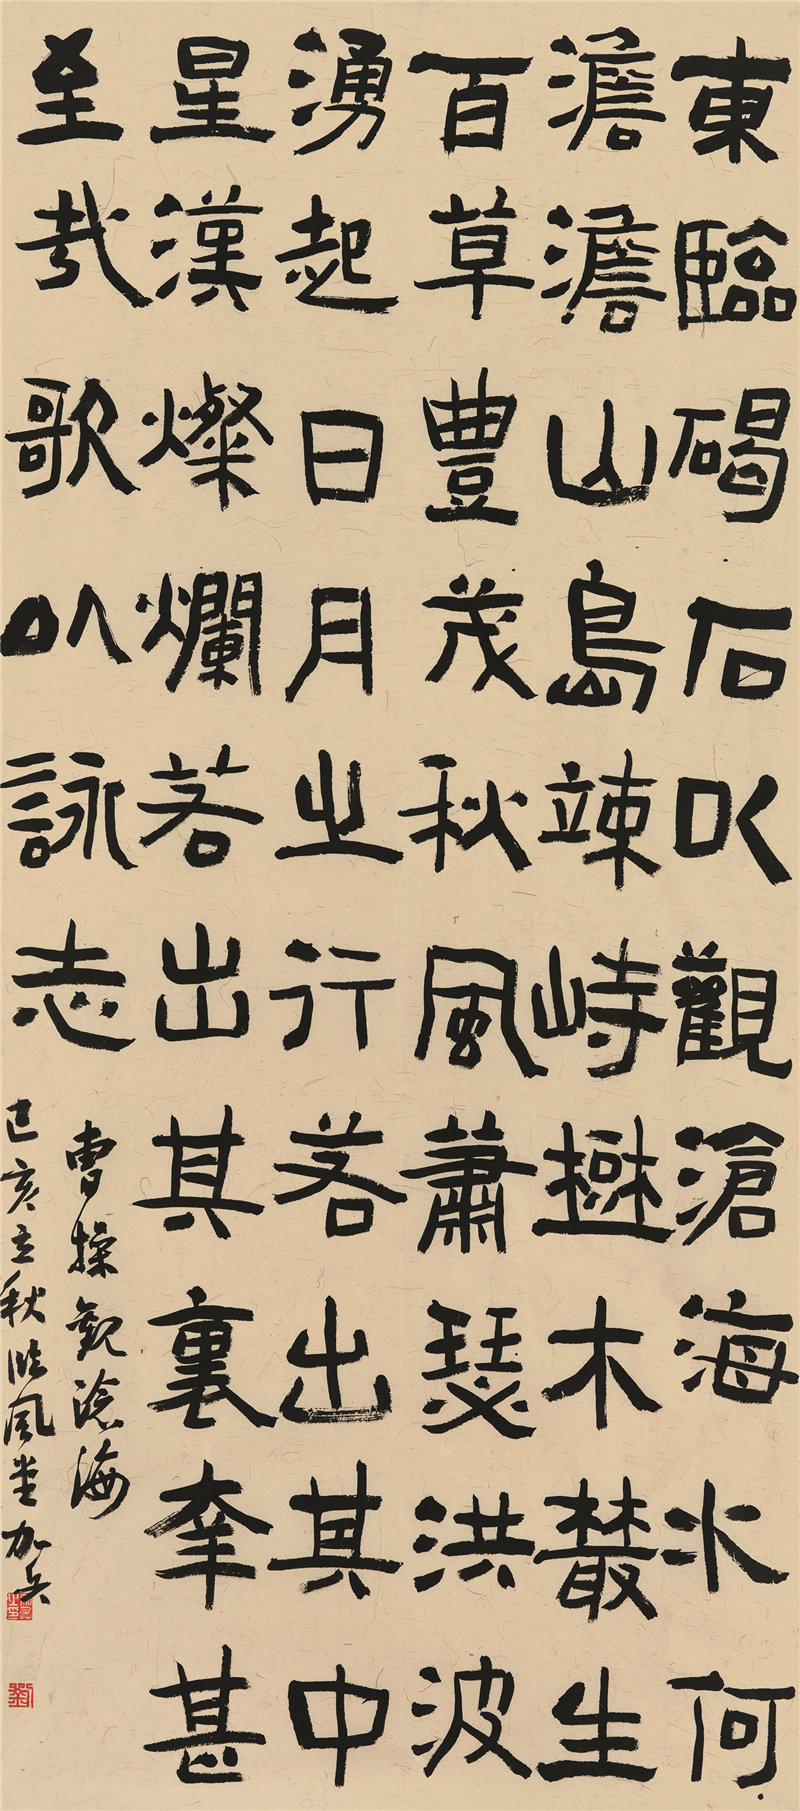 東臨碣石以觀滄海水何
澹澹山島竦峙樹木叢生
百草豐茂秋風蕭瑟洪波
湧起日月之行若出其中
星漢燦爛若出其裏幸甚
至哉歌以詠志
曹操觀滄海
己亥立秋臨風堂加